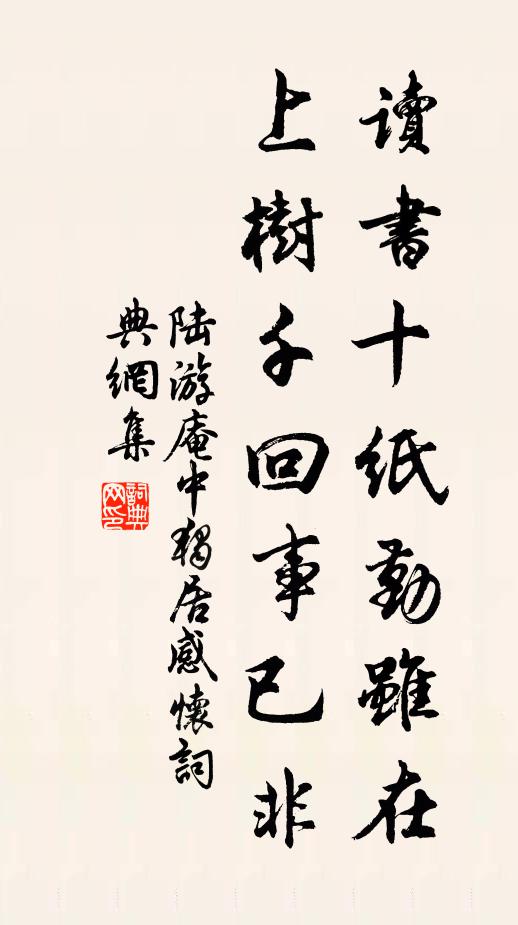 讀書十紙勤雖在
上樹千回事已非
陸游庵中獨居感懷詞
典網集
詞典网印